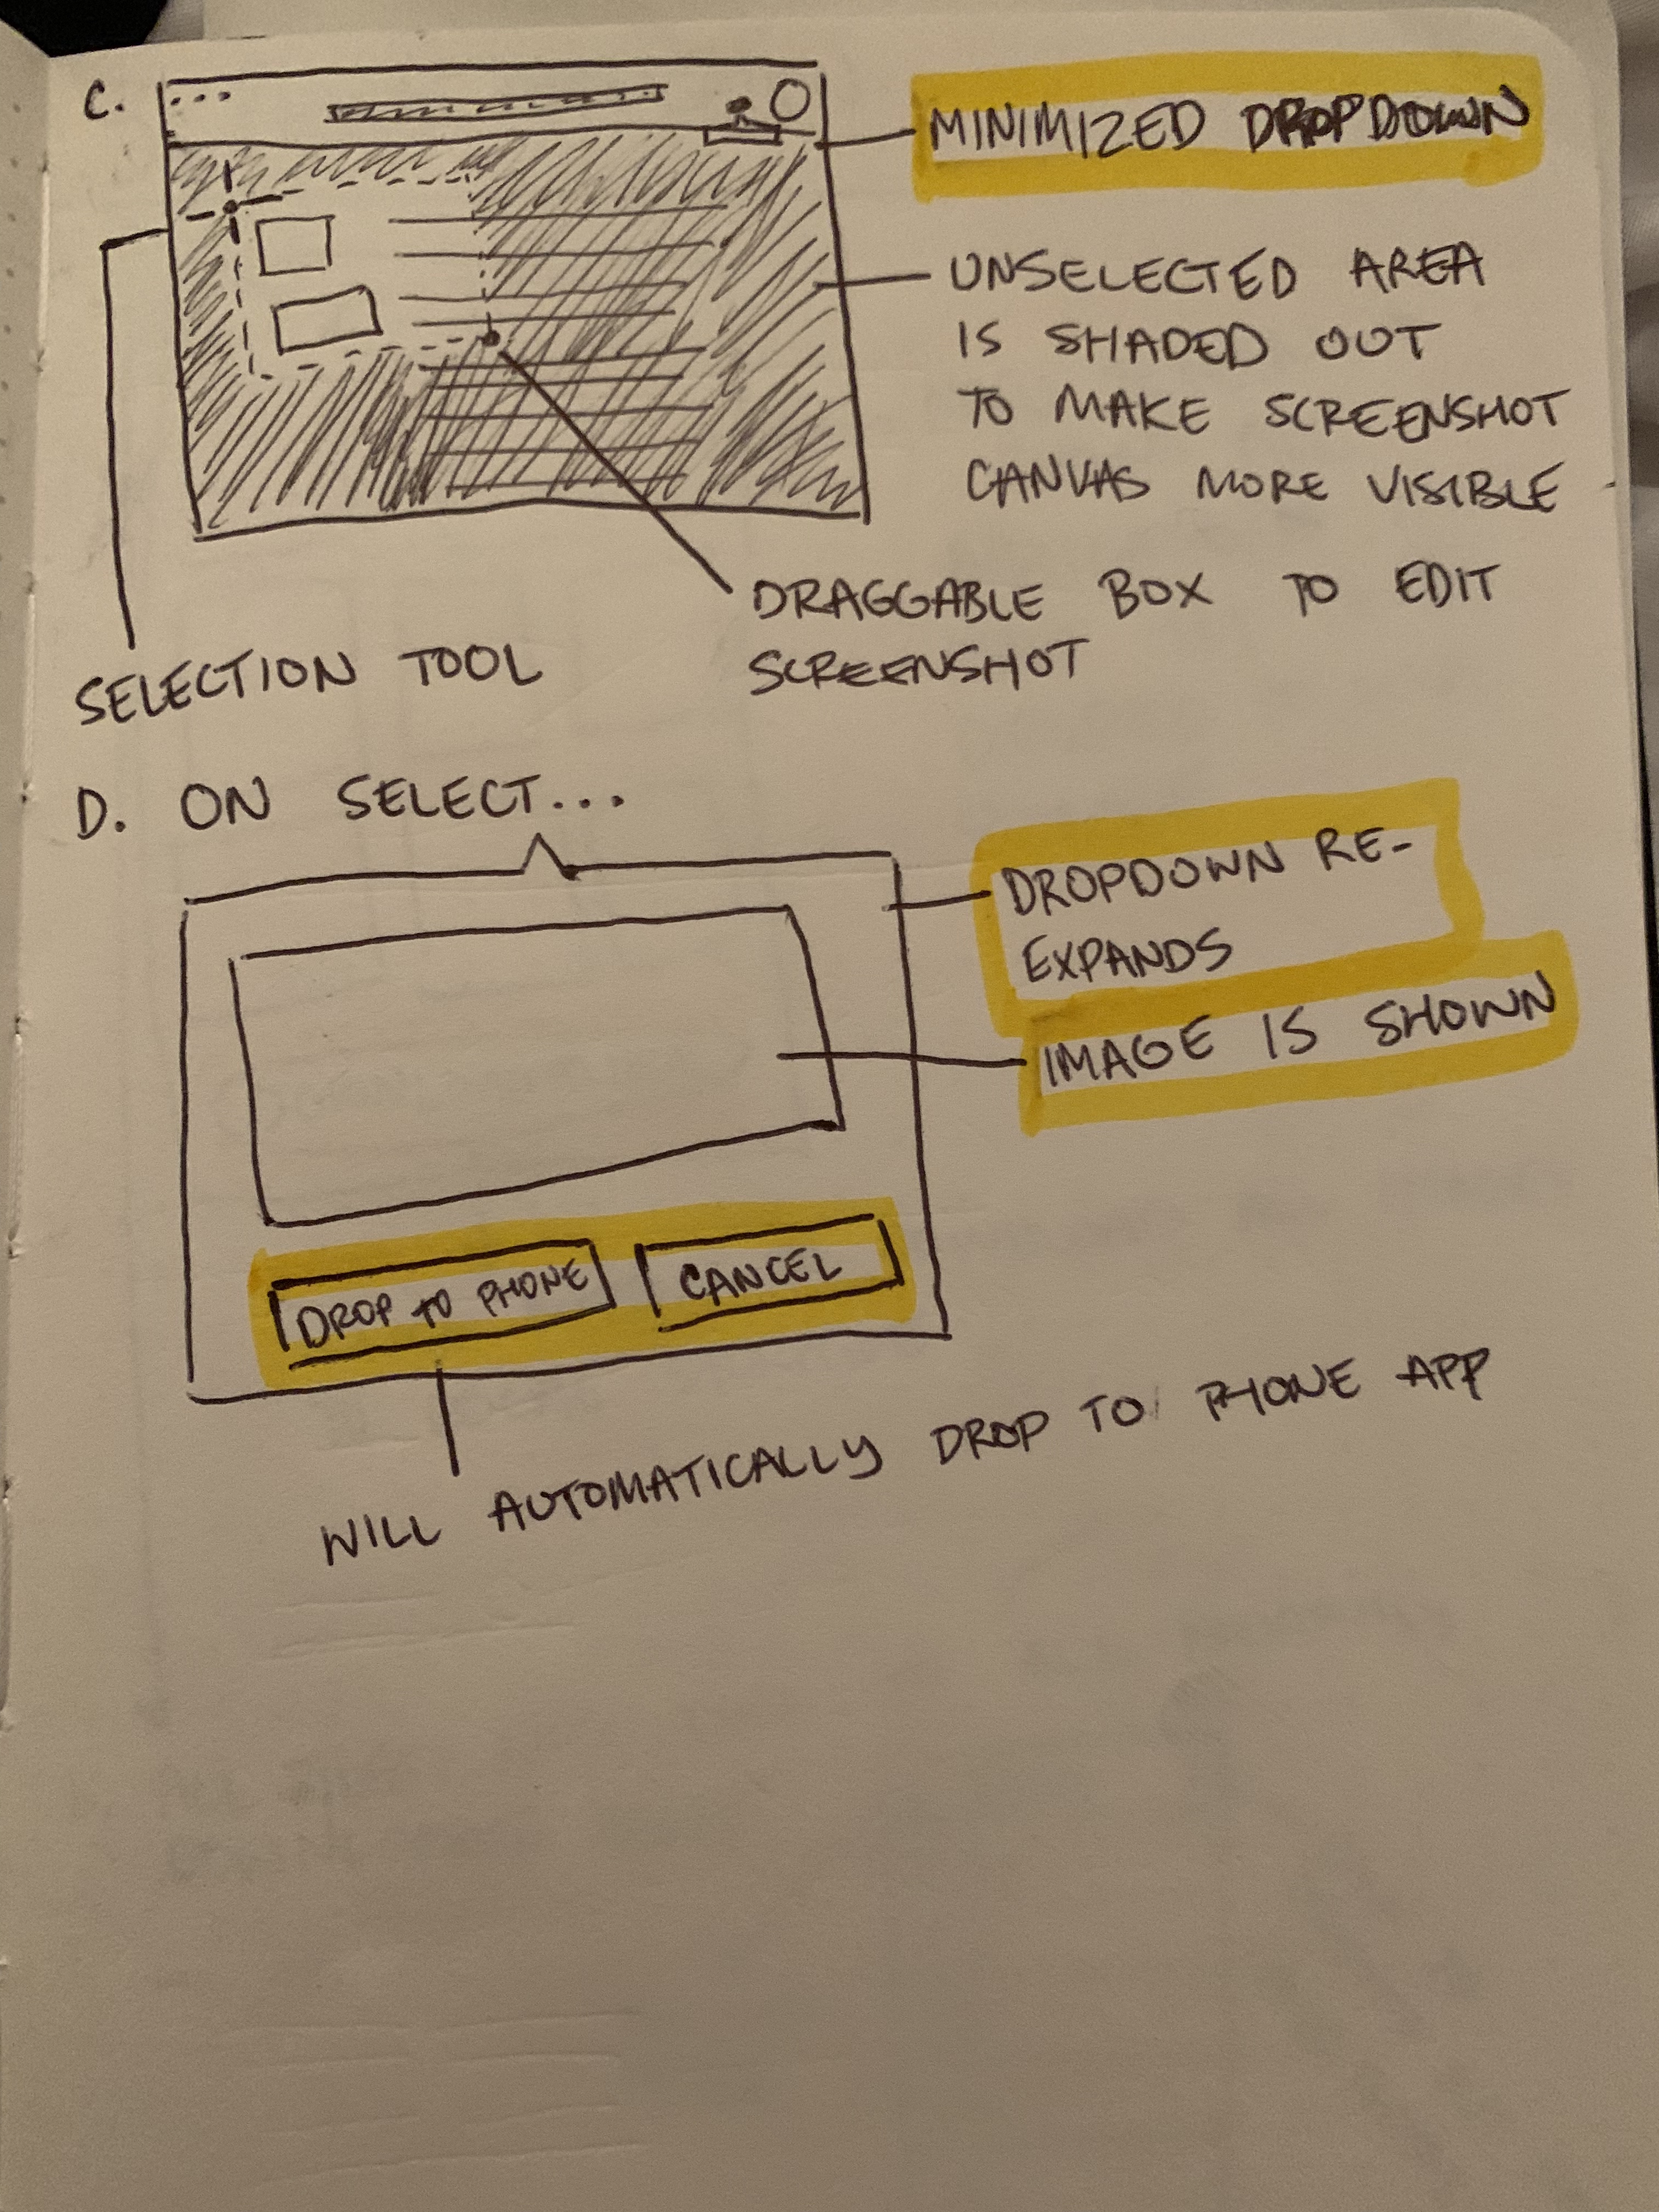 C.
MINIMIZED DROPDOWN
UNSELECTED AREA
IS SHADED OUT
TO MAKE SCREENSHOT
CANVAS MORE VISIBLE
DRAGGABLE BOX TO EDIT
SCREENSHOT
SELECTION TOOL
D. ON SELECT...
DROPDOWN RE-
EXPANDS
IMAGE IS SHOWN
DROP TO PHONE
CANCEL
WILL AUTOMATICALLY DROP TO PHONE APP